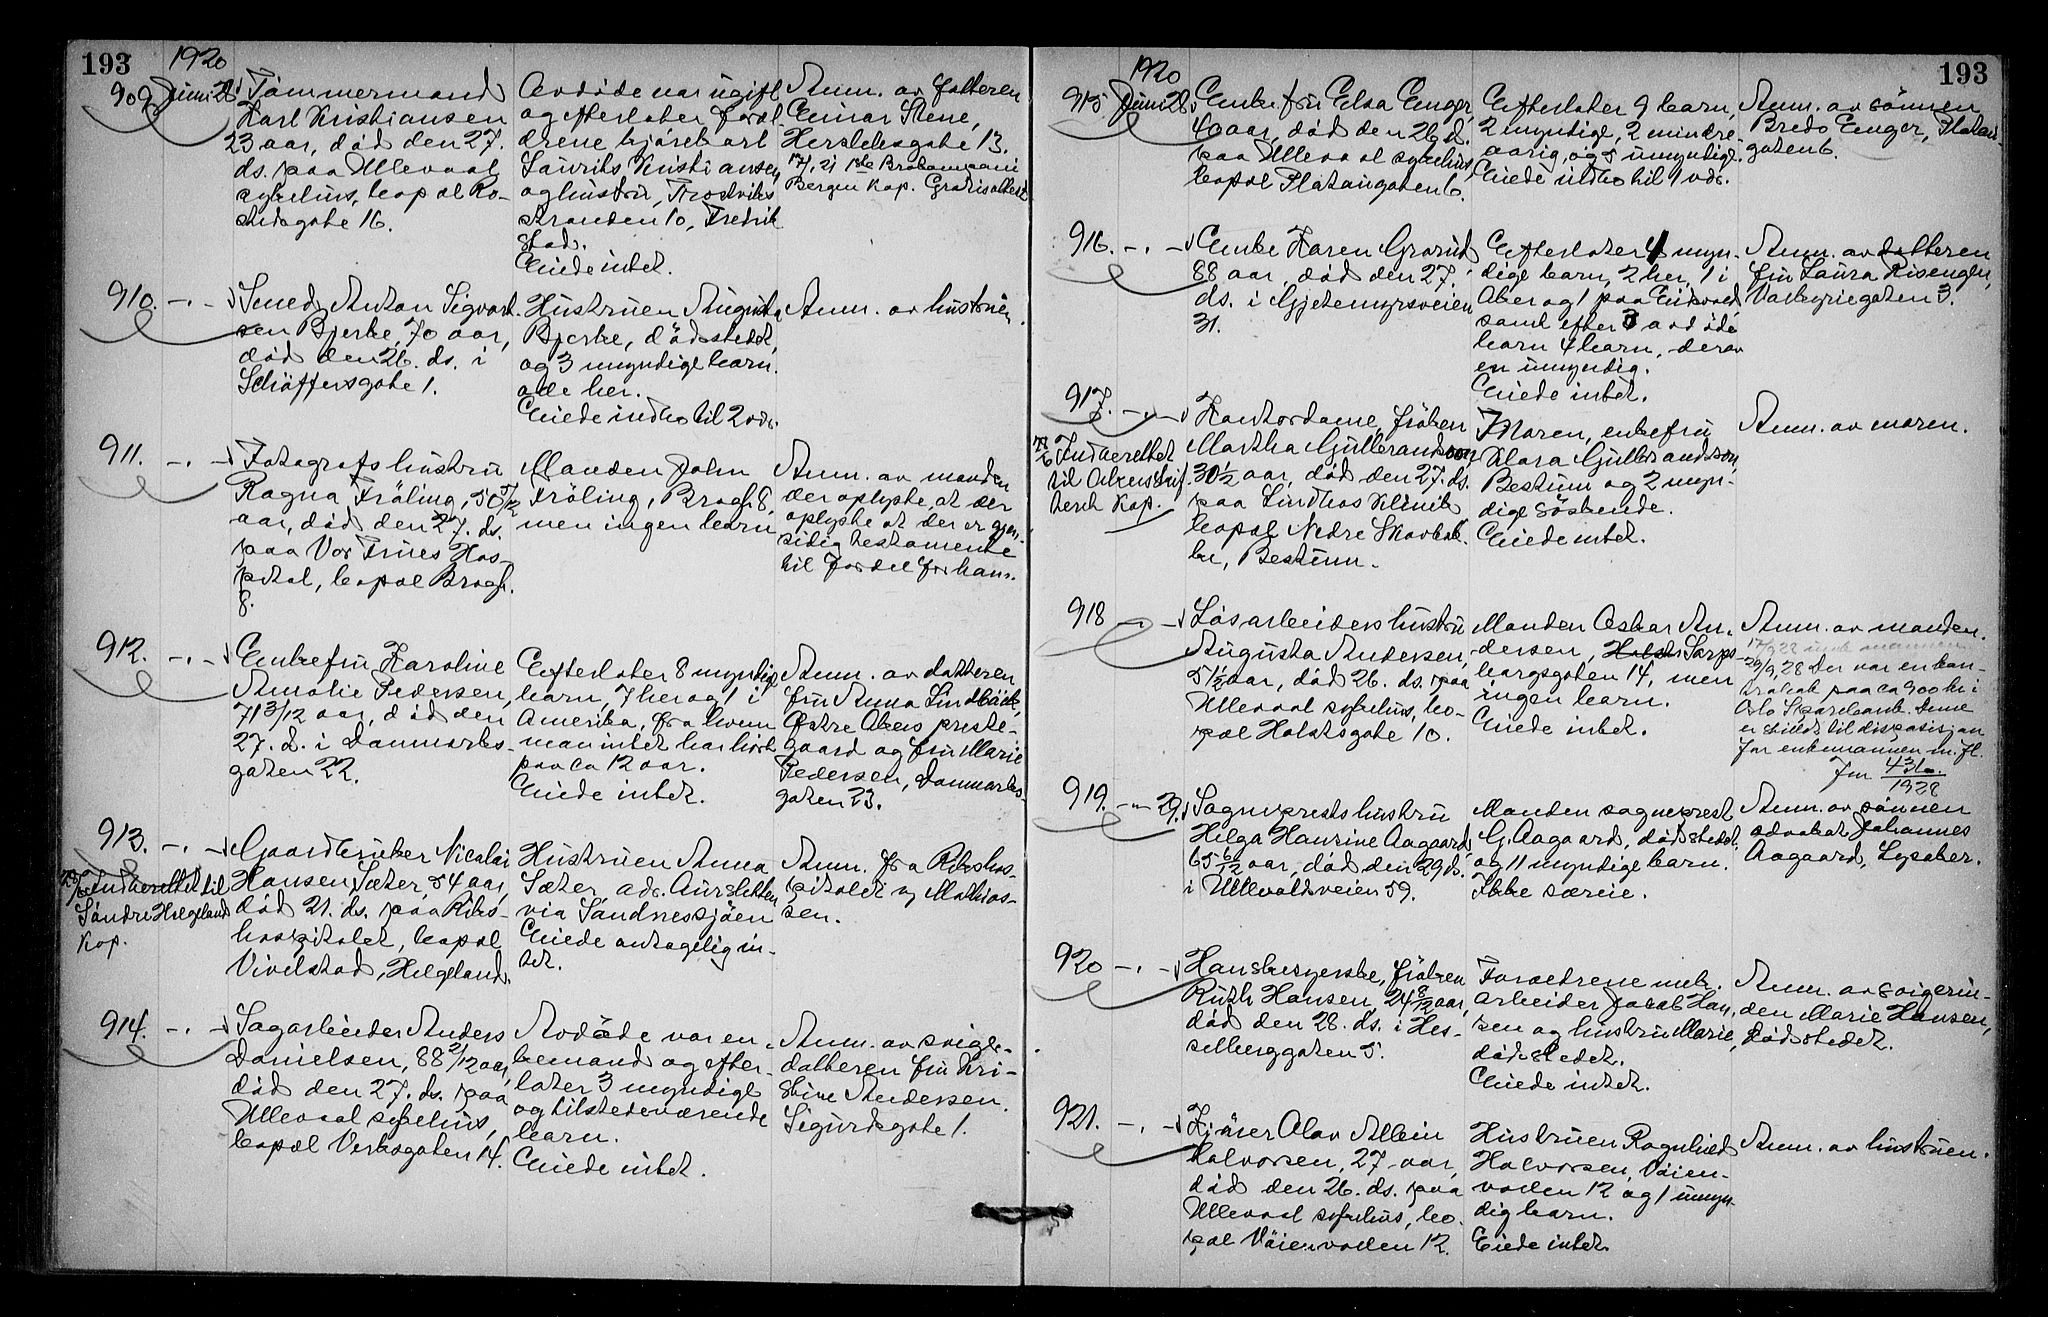 193
1920
909. Juni 28.
Tømmermand
Karl Kristiansen
23 aar, død den 27.
ds. paa Ullevaal
sykehus, bopæl Ro-
stedsgate 16.
Avdøde var ugift
og efterlater foræl-
drene kjørekarl
Lauritz Kristiansen
og hustru, Trosviks
stranden 10, Fredrik
stad.
Eiede intet.
Anm. av fætteren
Einar Stene,
Herslebsgate 13.
Bergen Kap. Gratisattest
910. -.-
Smed Anton Sigvart-
sen Bjerke, 70 aar,
død den 26. ds. i
Schøffersgate 1.
Hustruen Augusta
Bjerke, dødsstedet,
og 3 myndige barn.
alle her.
Eiede indbo til 2 vdr.
Anm. av hustruen.
911. -.-
Fotografs hustru
Ragna Frøling, 50 7/12
aar, død den 27. ds.
paa Vor Frues Hos-
pital, bopæl Brogt.
8.
Manden John
Frøling, Brogt. 8,
men ingen barn
Anm. av manden
der oplyste, at der
oplyste at der er gjen-
sidig testamente
til fordel for ham.
912. -.-
Enkefru Karoline
Amalie Pedersen,
71 3/12 aar, død den
27. d. i Danmarks-
gaten 22.
Efterlater 8 myndige
barn, 7 her og 1 i
Amerika, fra hvem
man intet har hørt
paa ca 12 aar.
Eiede intet.
Anm. av datteren
fru Anna Lindbäck,
Østre Akers preste-
gaard og fru Marie
Pedersen, Danmarks-
gaten 23.
913. -.-
Indberettet til
Søndre Helgeland
Kop.
Gaardbruker Nicolai
Hansen Sæter, 54 aar,
død 21. ds. paa Riks-
hospitalet, bopæl
Vivelstad, Helgeland.
Hustruen Anna
Sæter, adr. Aursletten
via Sandnessjøen
Eiede antagelig in-
tet.
Anm. fra Rikshos-
pitalet v/ Mathias-
sen.
914. -.-
Sagarbeider Anders
Danielsen, 88 2/12 aar,
død den 27. ds. paa
Ullevaal sykehus,
bopæl Verksgaten 14.
Avdøde var en-
kemand og efter-
later 3 myndige
og tilstedeværende
barn.
Eiede intet.
Anm. av sviger-
datteren fru Kri-
stine Andersen.
Sigurdsgate 1.
193
1920
915. Juni 28.
Enkefru Elsa Enger,
40 aar, død den 26 d.
paa Ullevaal sykehus,
bopæl Platousgaten 6.
Efterlater 9 barn,
2 myndige, 2 mindre-
aarig, og 5 umyndige.
Eiede indbo til 1 vdr.
Anm. av sønnen
Bredo Enger, Platous-
gaten 6.
916. -.-
Enke Karen Grorud
88 aar, død den 27.
ds. i Gjetemyrsveien
31.
Efterlater 4 myn-
dige barn, 2 her, 1 i
Aker og 1 paa Eidsvold,
samt efter 3 avdøde
barn 4 barn, derav
en umyndig.
Eiede intet.
Anm. av datteren
fru Laura Risengen,
Valkyriegaten 3.
917. -.-
Indberettet
til Akers skif-
teret Kop.
Kontordame, frøken
Martha Gulbrandson
30 1/2 aar, død den 27. ds.
paa Lindboes Klinik
bopæl Nedre Skovbak-
ke, Bestum.
Moren, enkefru
Klara Gulbrandson,
Bestum og 2 myn-
dige søskende.
Eiede intet.
Anm. av moren.
918 -.-
Løsarbeiders hustru
Augusta Andersen,
51 1/2 aar, død 26. ds. paa
Ullevaal sykehus, bo-
pæl Holstsgate 10.
Manden Oskar An-
dersen, Holsts Sarps-
borgsgaten 14, men
ingen barn.
Eiede intet.
Anm. av manden.
29/9 28 Der var en ban-
kbok paa ca 900 kr i
Oslo Sparebank. Denne
er stillet til disposisjon
for enkemannen m. fl.
Jnr 4310
1928
919. -.- 29.
Sogneprests hustru
Helga Hansine Aagaard,
65 6/12 aar, død den 29 ds.
i Ullevoldsveien 59.
Manden sogneprest
G. Aagaard, dødsstedet,
og 11 myndige barn.
Ikke særeie.
Anm. av sønnen
advokat Johannes
Aagaard, Lysaker.
920 -.-
Hansksyerske, frøken
Ruth Hansen, 24 8/12 aar,
død den 28. ds. i Hes-
selberggaten 5.
Forældrene mek.
arbeider Jacob Han-
sen og hustru Marie,
dødsstedet.
Eiede intet.
Anm. av svigerin-
den Marie Hansen,
dødsstedet.
921. -.-
Kjører Olav Albin
Halvorsen, 27 aar,
død den 26. ds. paa
Ullevaal sykehus, bo-
pæl Vøienvolden 12.
Hustruen Ragnhild
Halvorsen, Vøien-
volden 12 og 1 umyn-
dig barn.
Eiede intet.
Anm. av hustruen.